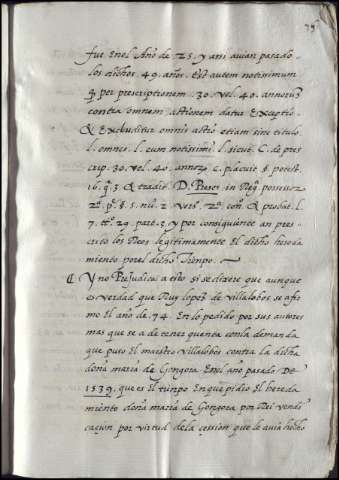 fue Enel Año de 25. y ansi auian pasado
los dichos. 49. años. Est autem notissimum
q̃ per prescriptionem. 30. vel. 40. annorum
contra omnem actionem datur exceptio
& Excluditur omnis actio etiam sine titulo.
l. omnes. l. cum notissimi. l. sicut. C. de pres
crip. 30. vel. 40. anno2. c. placuit. §. potest.
16. q. 3. & tradit. D. Preses. in Reg. possessor
2ª. p. §. 5. nu. 2. vers. 2ª. con. & probat. l.
7. tt. 29. parte. 3. y por consiguiente an pres
crito los Reos legitimamente El dicho hereda
miento por el dicho Tiempo.
Y no Perjudica a esto si se dixere que aunque
es verdad que Ruy lopez de villalobos se afir
mo El año de. 74. En lo pedido por sus autores
mas que se a de tener quenta con la demanda
que puso El maestro villalobos contra la dicha
doña maria de Gongora Enel año pasado. DE
1539. que es El tiempo En que pidio El hereda
miento doña maria de Gongora por Rei vendi
cacion por virtud de la cession que le auia hecho